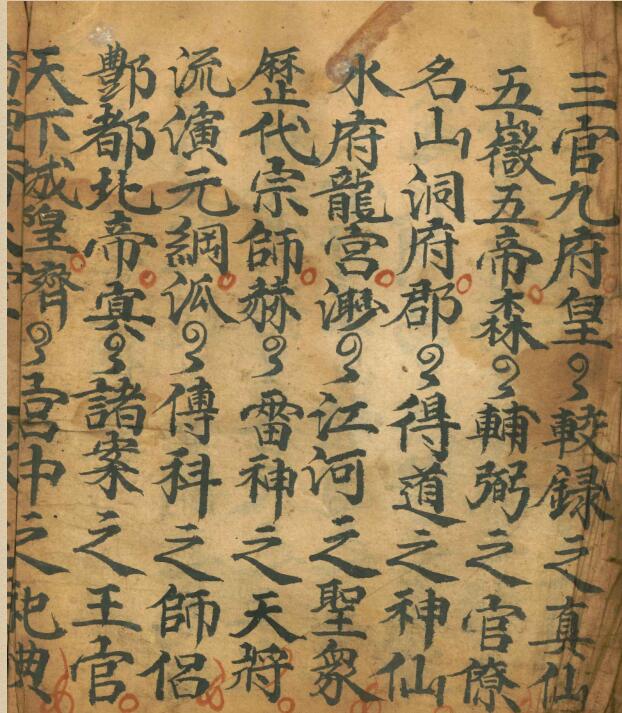 三官九府皇々較録之真仙
五嶽五帝森々輔弼之官僚
名山洞府郡々得道之神仙
水府龍宮渺々江河之聖衆
歴代宗師赫々雷神之天將
流演元綱派々傳科之師侶
酆都北帝寘々諸案之王官
天下城皇濟々宫中之祀典